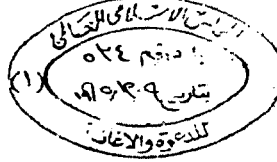 المجلس الإسلامي العالمي
رقم ٥٣٤
(١)
بتاريخ
للدعوة والإغاثة